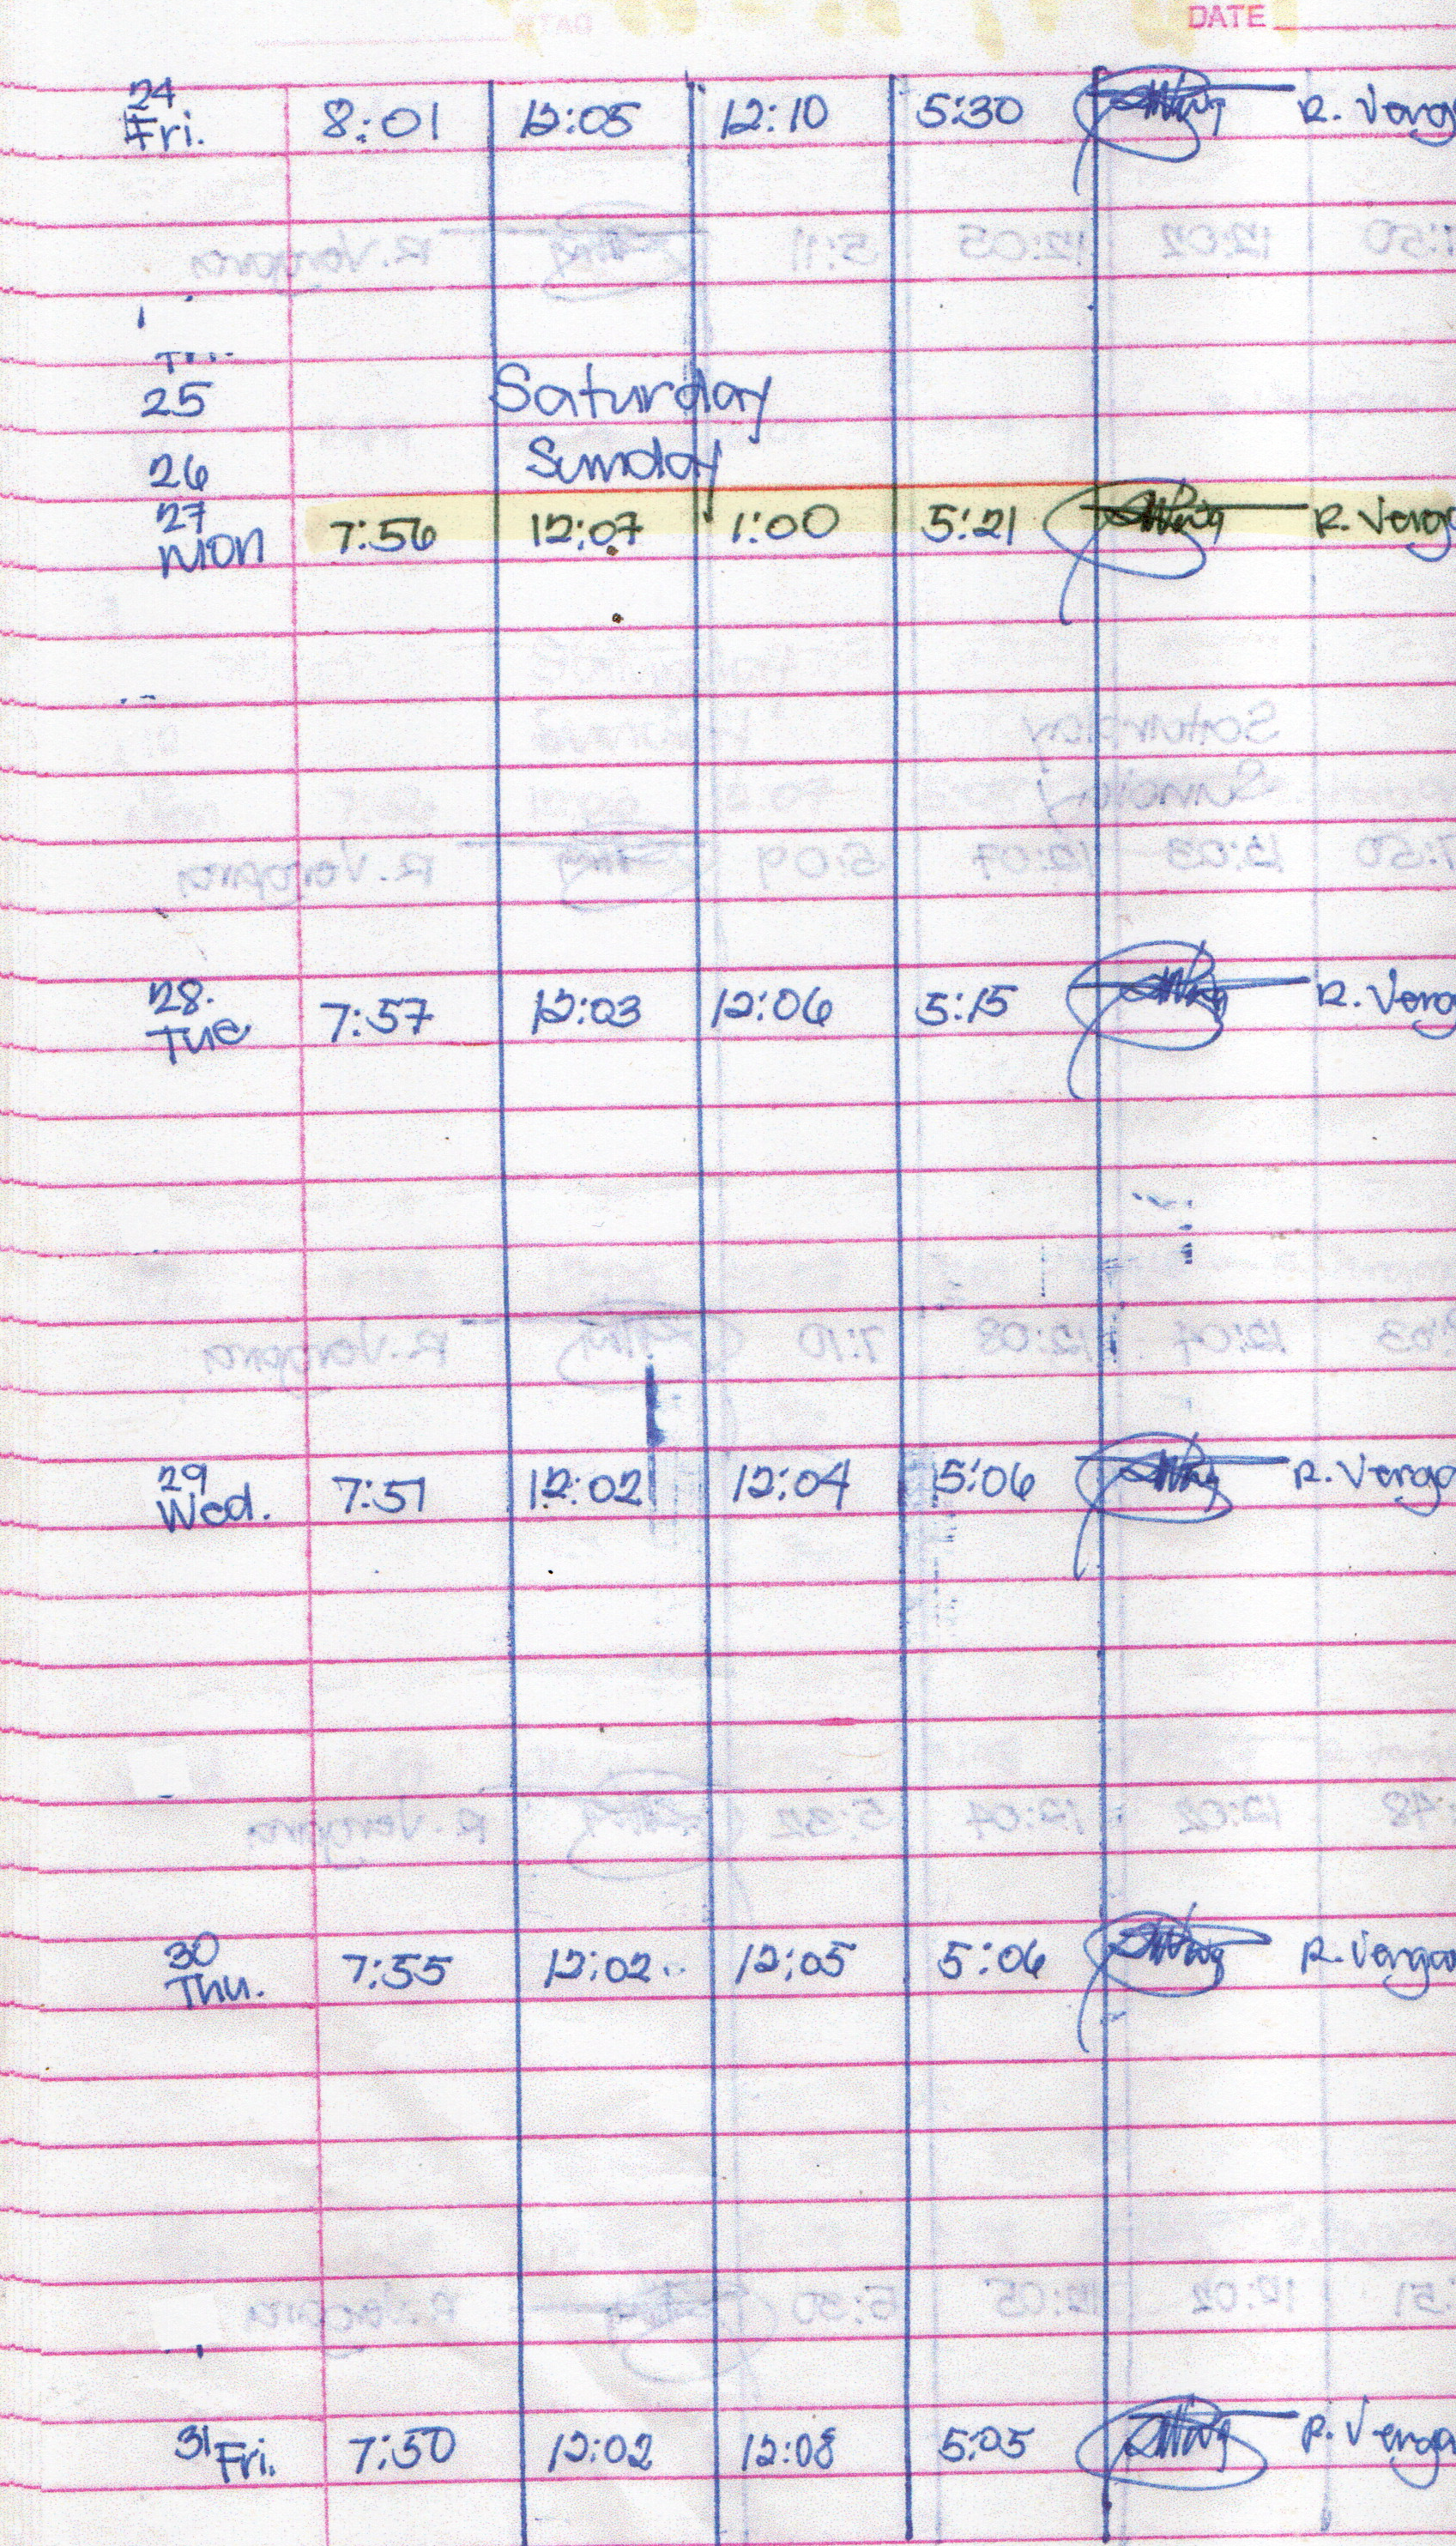 DATE
24
Fri. 8:01 12:05 12:10 5:30 R. Verg
25 Saturday
26 Sunday
27
Mon 7:56 12:07 1:00 5:21 R. Verg
28.
Tue 7:57 12:03 12:06 5:15 R. Verg
29
Wed. 7:51 12:02 12:04 5:06 R. Verga
30
Thu. 7:55 12:02 12:05 5:06 R. Vergar
31 Fri. 7:50 12:02 12:08 5:05 R. Verga